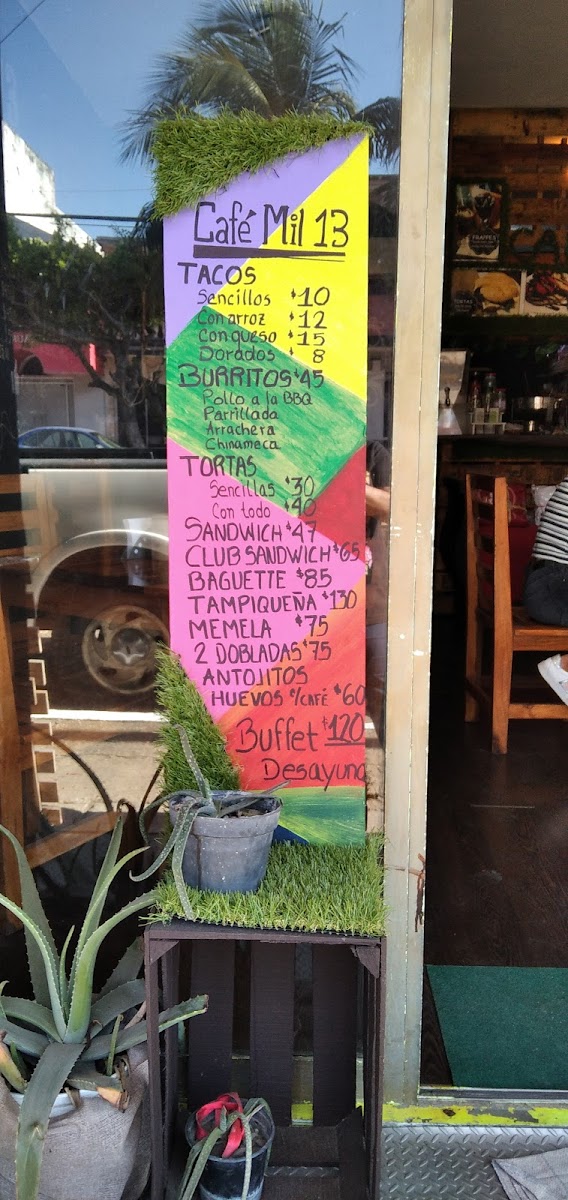 Café Mil 13
TACOS
Sencillos $10
Con arroz $12
Con queso $15
Dorados $8
BURRITOS $45
Pollo a la BBQ
Parrillada
Arrachera
Chinameca
TORTAS
Sencillas $30
Con todo $40
SANDWICH $47
CLUB SANDWICH $65
BAGUETTE $85
TAMPIQUEÑA $130
MEMELA $75
2 DOBLADAS $75
ANTOJITOS
HUEVOS c/CAFÉ $60
Buffet $120
Desayuno
FRAPPES
CA
TORTAS